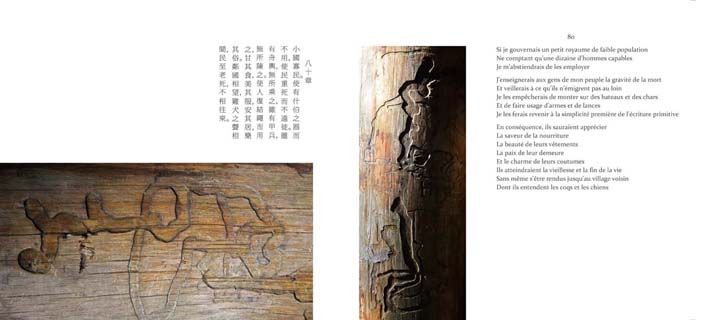 八十章
小國寡民。使有什伯之器而
不用。使民重死而不遠徙。雖
有舟輿，無所乘之。雖有甲兵，
無所陳之。使人復結繩而用
之。甘其食，美其服，安其居，樂
其俗。鄰國相望，雞犬之聲相
聞，民至老死，不相往來。
80
Si je gouvernais un petit royaume de faible population
Ne comptant qu'une dizaine d'hommes capables
Je m'abstiendrais de les employer
J'enseignerais aux gens de mon peuple la gravité de la mort
Et veillerais à ce qu'ils n'émigrent pas au loin
Je les empêcherais de monter sur des bateaux et des chars
Et de faire usage d'armes et de lances
Je les ferais revenir à la simplicité première de l'écriture primitive
En conséquence, ils sauraient apprécier
La saveur de la nourriture
La beauté de leurs vêtements
La paix de leur demeure
Et le charme de leurs coutumes
Ils atteindraient la vieillesse et la fin de la vie
Sans même s'être rendus jusqu'au village voisin
Dont ils entendent les coqs et les chiens